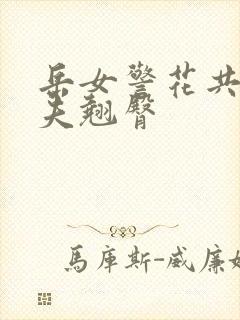 岳女警花共
夫翘臀
馬庫斯-威廉姆